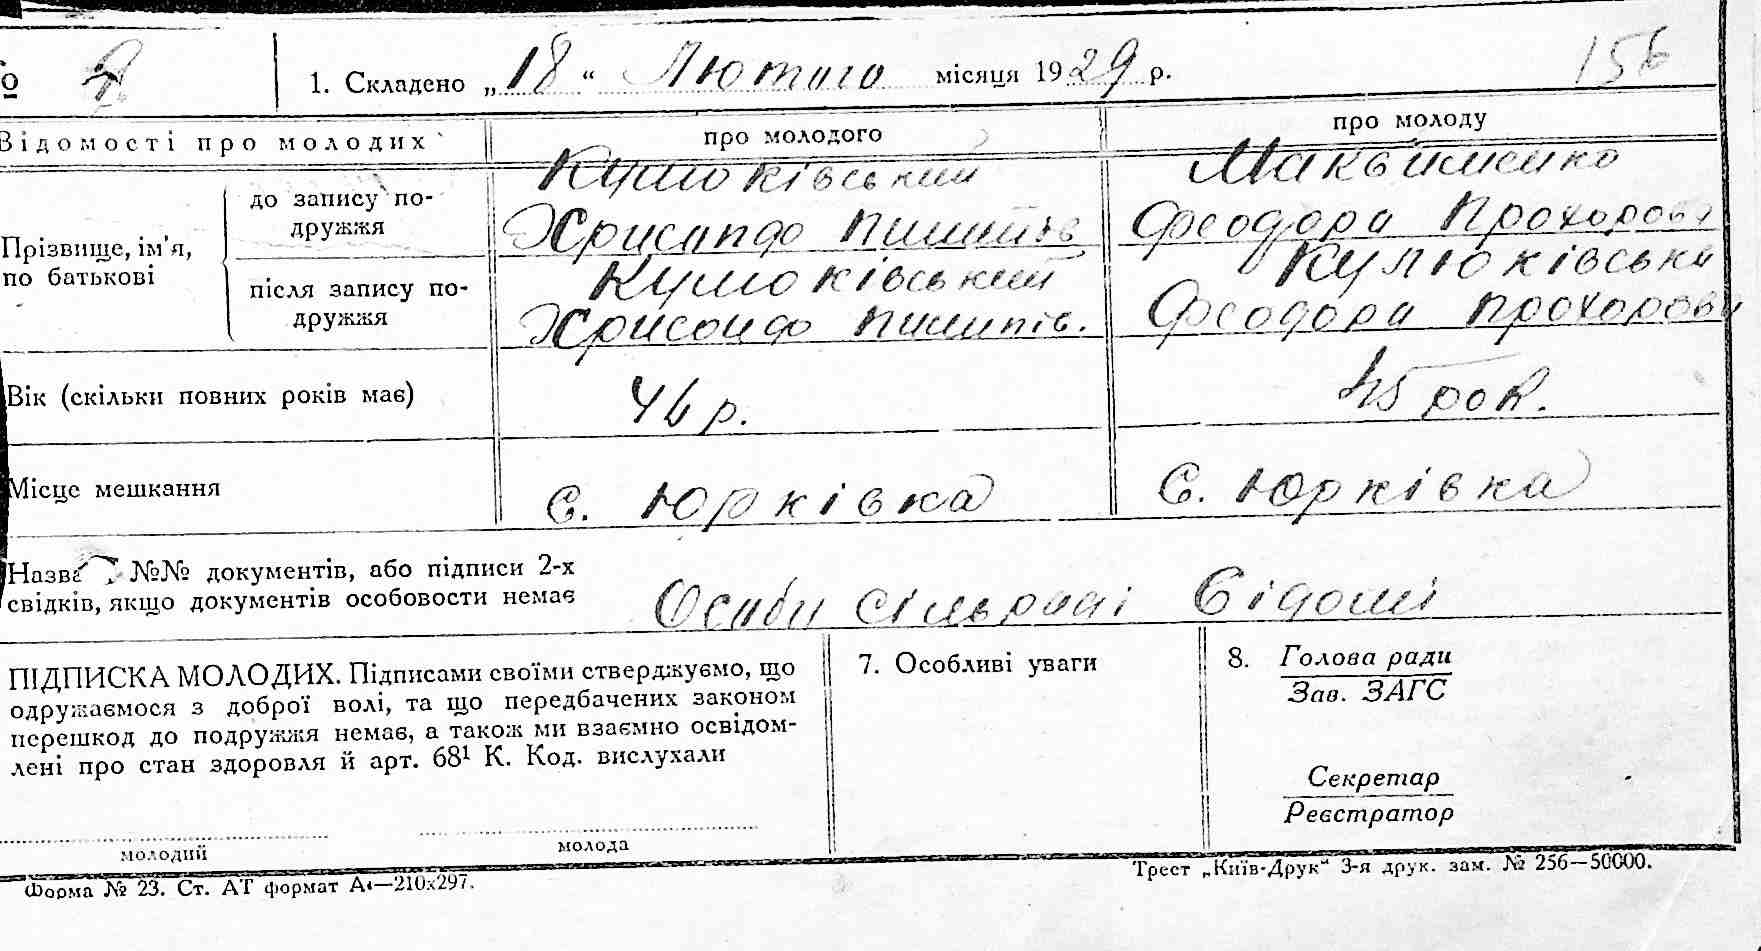 1. Складено „18“ Лютого місяця 1929 р.
156
Відомості про молодих
про молодого
про молоду
Прізвище, ім'я,
по батькові
до запису по-
дружжя
Кулюківський
Хрисандо Пилипів
Максименко
Феодора Прохоров
після запису по-
дружжя
Кулюківський
Хрисандо Пилипів.
Кулюківська
Феодора Прохоров
Вік (скільки повних років має)
46 р.
45 рок.
Місце мешкання
с. Юрківка
с. Юрківка
Назва №№ документів, або підписи 2-х
свідків, якщо документів особовости немає
Особи сільраді відомі
ПІДПИСКА МОЛОДИХ. Підписами своїми стверджуємо, що
одружаємося з доброї волі, та що передбачених законом
перешкод до подружжя немає, а також ми взаємно освідом-
лені про стан здоровля й арт. 68¹ К. Код. вислухали
молодий
молода
7. Особливі уваги
8. Голова ради
Зав. ЗАГС
Секретар
Реєстратор
Форма № 23. Ст. АТ формат А₄—210х297.
Трест „Київ-Друк“ 3-я друк. зам. № 256—50000.